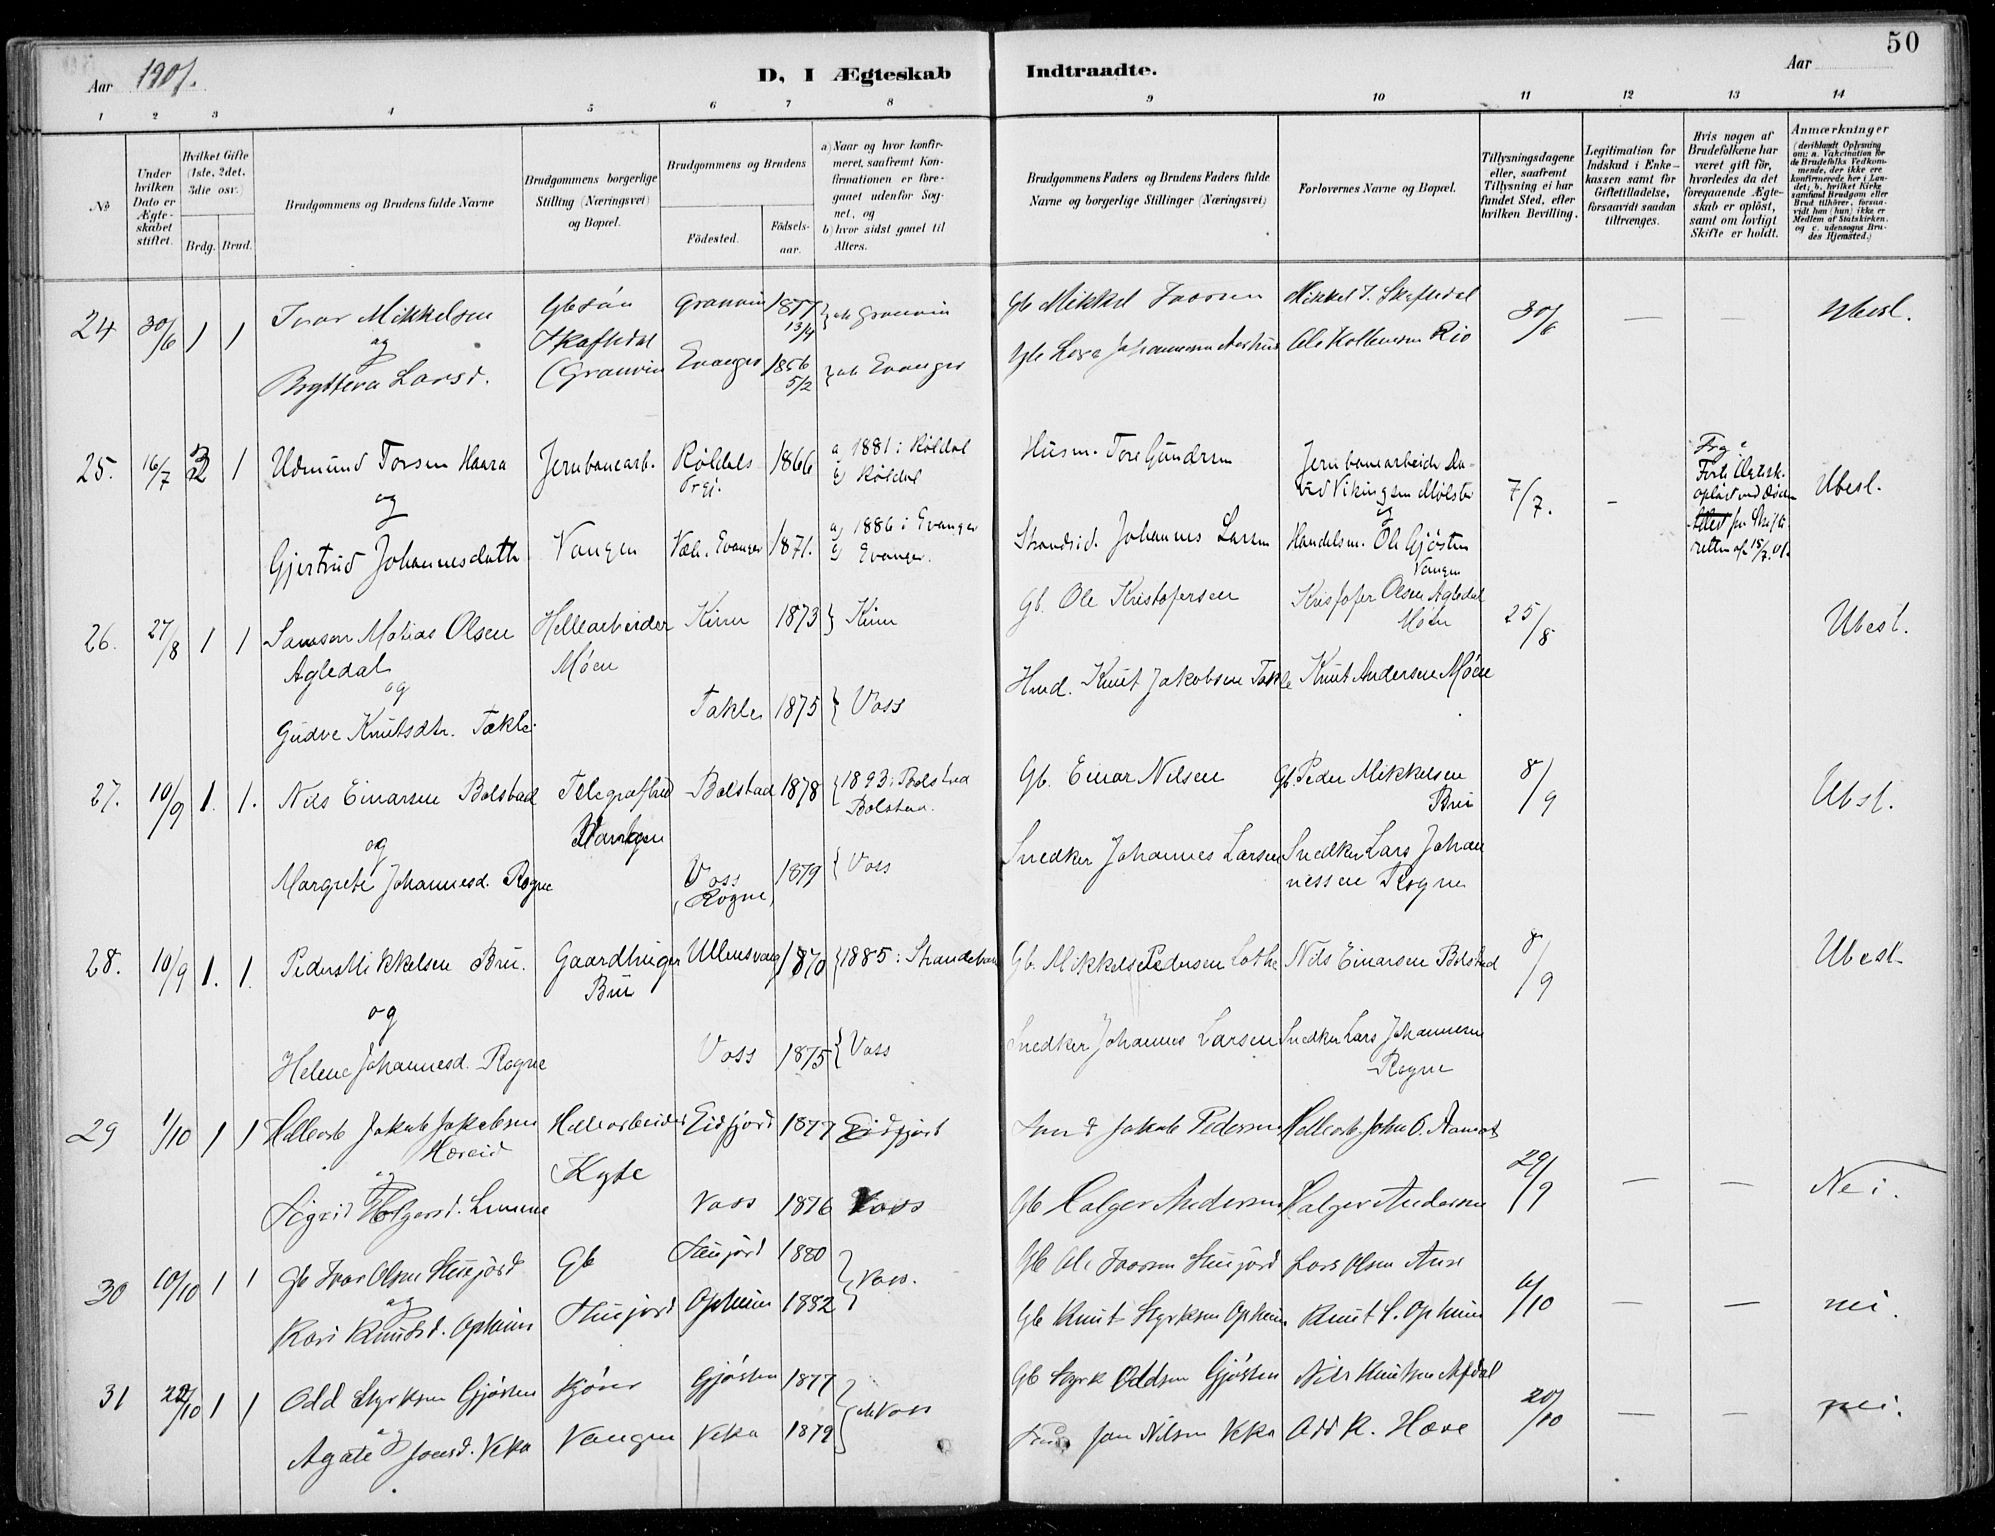 50
Aar 1901.
D, I Ægteskab Indtraadte.
Aar
1 2 3 4 5 6 7 8 9 10 11 12 13 14
No
Under hvilken Dato er Ægteskabet stiftet.
Hvilket Gifte (1ste, 2det, 3die osv.)
Brdg. Brud.
Brudgommens og Brudens fulde Navne
Brudgommens borgerlige Stilling (Næringsvei) og Bopæl.
Brudgommens og Brudens
Fødested.
Fødselsaar.
a) Naar og hvor konfirmeret, saafremt Konfirmationen er foregaaet udenfor Sognet, og
b) hvor sidst gaaet til Alters.
Brudgommens Faders og Brudens Faders fulde Navne og borgerlige Stillinger (Næringsvei)
Forlovernes Navne og Bopæl.
Tillysningsdagene eller, saafremt Tillysning ei har fundet Sted, efter hvilken Bevilling.
Legitimation for Indskud i Enkekassen samt for Giftetilladelse, forsaavidt saadan tiltrænges.
Hvis nogen af Brudefolkene har været gift før, hvorledes da det foregaaende Ægteskab er opløst, samt om lovligt Skifte er holdt.
Anmærkninger (deriblandt Oplysning om: a. Vakcination for de Brudefolks Vedkommende, der ikke ere konfirmerede her i Landet; b. hvilket Kirkesamfund Brudgom eller Brud tilhører, forsaavidt han (hun) ikke er Medlem af Statskirken, og c. udensogns Brudes Hjemsted.)
24 30/6 1 1 Ivar Mikkelsen Gbsøn Granvin 1877 13/4 Granvin Gb Mikkel Ivarsen Mikkel I. Skaftedal 30/6 — — Ubesl.
og Skaftedal
Brytteva Larsd. (Granvin Evanger 1856 5/2 Evanger Gb Lars Johannesen Ole Kolbensen Rio
25. 16/7 2 1 Udmund Torsen Haara Jernbanearb. Røldals Prgj. 1866 a) 1881 i Røldal b) Røldal Husm. Tore Gundersen Jernbanearbeider David Vikingsen Mølster 7/7. - Ubesl.
og
Gjertrud Johannesdatter Vangen Væh. Evanger 1871. a) 1886 i Evanger b) Evanger. Strandsid. Johannes Larsen Handelsm. Ole Gjøsten Vangen
26. 27/8 1 1 Samson Matias Olsen Agledal Hellearbeider Møen Kinn 1873 } Kinn Gb. Ole Kristofersen Kristofer Olsen Agledal Møen 25/8 Ubesl.
og
Gudve Knutsdtr. Takle. Takle 1875 } Voss Hmd. Knut Jakobsen Takle Knut Andersen Møen
27. 10/9 1. 1. Nils Einarsen Bolstad Telegrafbud Vangen Bolstad 1878 { 1893: Bolstad Bolstad. Gb. Einar Nilsen Gb. Peder Mikkelsen Bru 8/9 Ubesl.
og
Margrete Johannesd. Rogne Voss (Rogne) 1879 { Voss Snedker Johannes Larsen Snedker Lars Johannessen Rogne
28. 10/9 1. 1. Peder Mikkelsen Bru. Gaardbruger Bru Ullensvang 1870 { 1885: Strandebarm Gb. Mikkel Pedersen Lothe Nils Einarsen Bolstad 8/9 Ubesl.
og
Helene Johannesd. Rogne Voss 1875 { Voss Snedker Johannes Larsen Snedker Lars Johannesen Rogne
29 1/10 1 1 Hellearb Jakob Jakobsen Hæreid Hellearbeider Eidfjord 1877 Eidfjord Jakob Pedersen Hellearb. John O. Aamot 29/9 — — Nei.
og Kyte
Sigrid Holgersd. Lemme Voss 1876 Voss Gb Holger Andersen Holger Andersen
30 10/10 1 1 Gb Ivar Olsen Gb 1880 Voss. Gb Ole Ivarsen Lars Olsen 6/10 — — nei.
og
Kari Knutsd. Opheim Opheim 1882 Gb Knut Styrksen Opheim Knut S. Opheim
31 22/10 1 1 Odd Styrksen Gjøsten Kjører Gjøsten 1877 Voss Gb Styrk Oddsen Gjøsten Nils Knutsen Afdal 20/10 — — nei.
og
Agate Joensd. Veka Vangen Veka 1879 Jon Nilsen Veka Odd K. Hæve